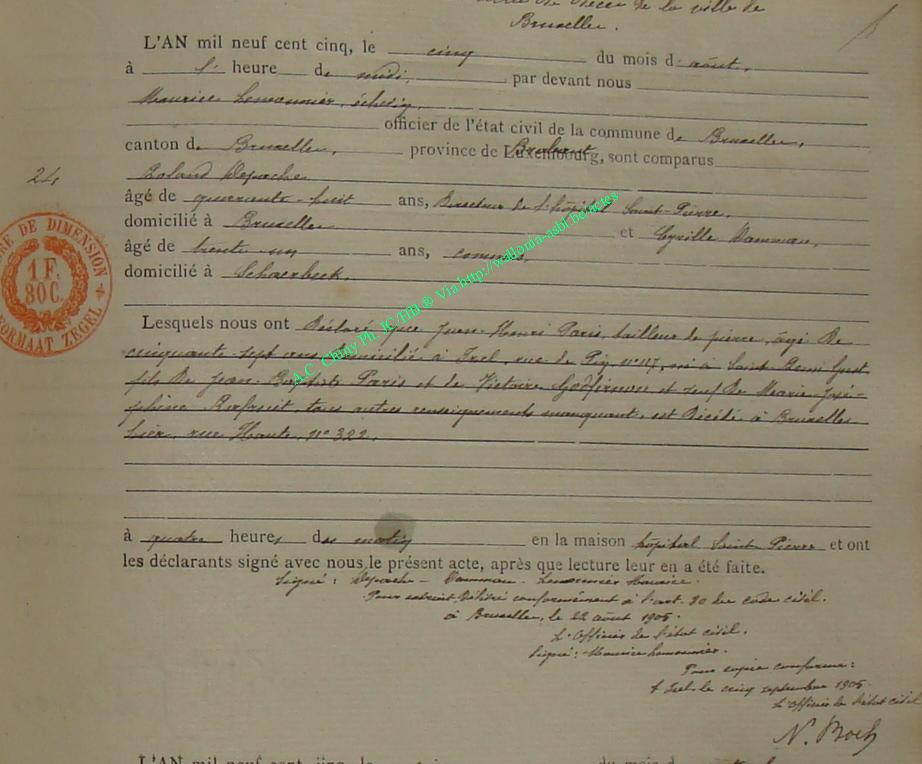 de décès de la ville de
Bruxelles.
L'AN mil neuf cent cinq, le cinq du mois d'août,
à l' heure de midi, par devant nous
Maurice Lemonnier, échevin,
officier de l'état civil de la commune de Bruxelles,
canton de Bruxelles, province de Luxembourg, Brabant sont comparus
24,
Roland Depache
âgé de quarante-huit ans, Directeur de l'hôpital Saint-Pierre,
domicilié à Bruxelles et Cyrille Damman,
âgé de trente-un ans, commis,
domicilié à Schaerbeek.
TIMBRE DE DIMENSION
1 F.
80 C.
FORMAAT ZEGEL
A.C. Chiny Ph. JC/HB ® Via http://wallonia-asbl.be/actes
Lesquels nous ont Déclaré que Jean-Henri Paris, tailleur de pierre, âgé de
cinquante-sept ans, domicilié à Izel, rue de Pin, n° 117, né à Saint-Remi
fils de Jean-Baptiste Paris et de Victoire et veuf de Marie-José-
phine tous autres renseignements manquant, est décédé à Bruxelles
hier, rue Haute, n° 322,
à quatre heures du matin en la maison hôpital Saint Pierre et ont
les déclarants signé avec nous le présent acte, après que lecture leur en a été faite.
Signé: Depache - Damman - Lemonnier Maurice.
Pour extrait délivré conformément à l'art. 80 du code civil.
à Bruxelles, le 22 août 1905.
L'Officier de l'état civil.
Signé: Maurice Lemonnier.
Pour copie conforme:
à Izel le cinq septembre 1905.
L'Officier de l'état civil
N. Boch
L'AN mil neuf cent cinq, le du mois d